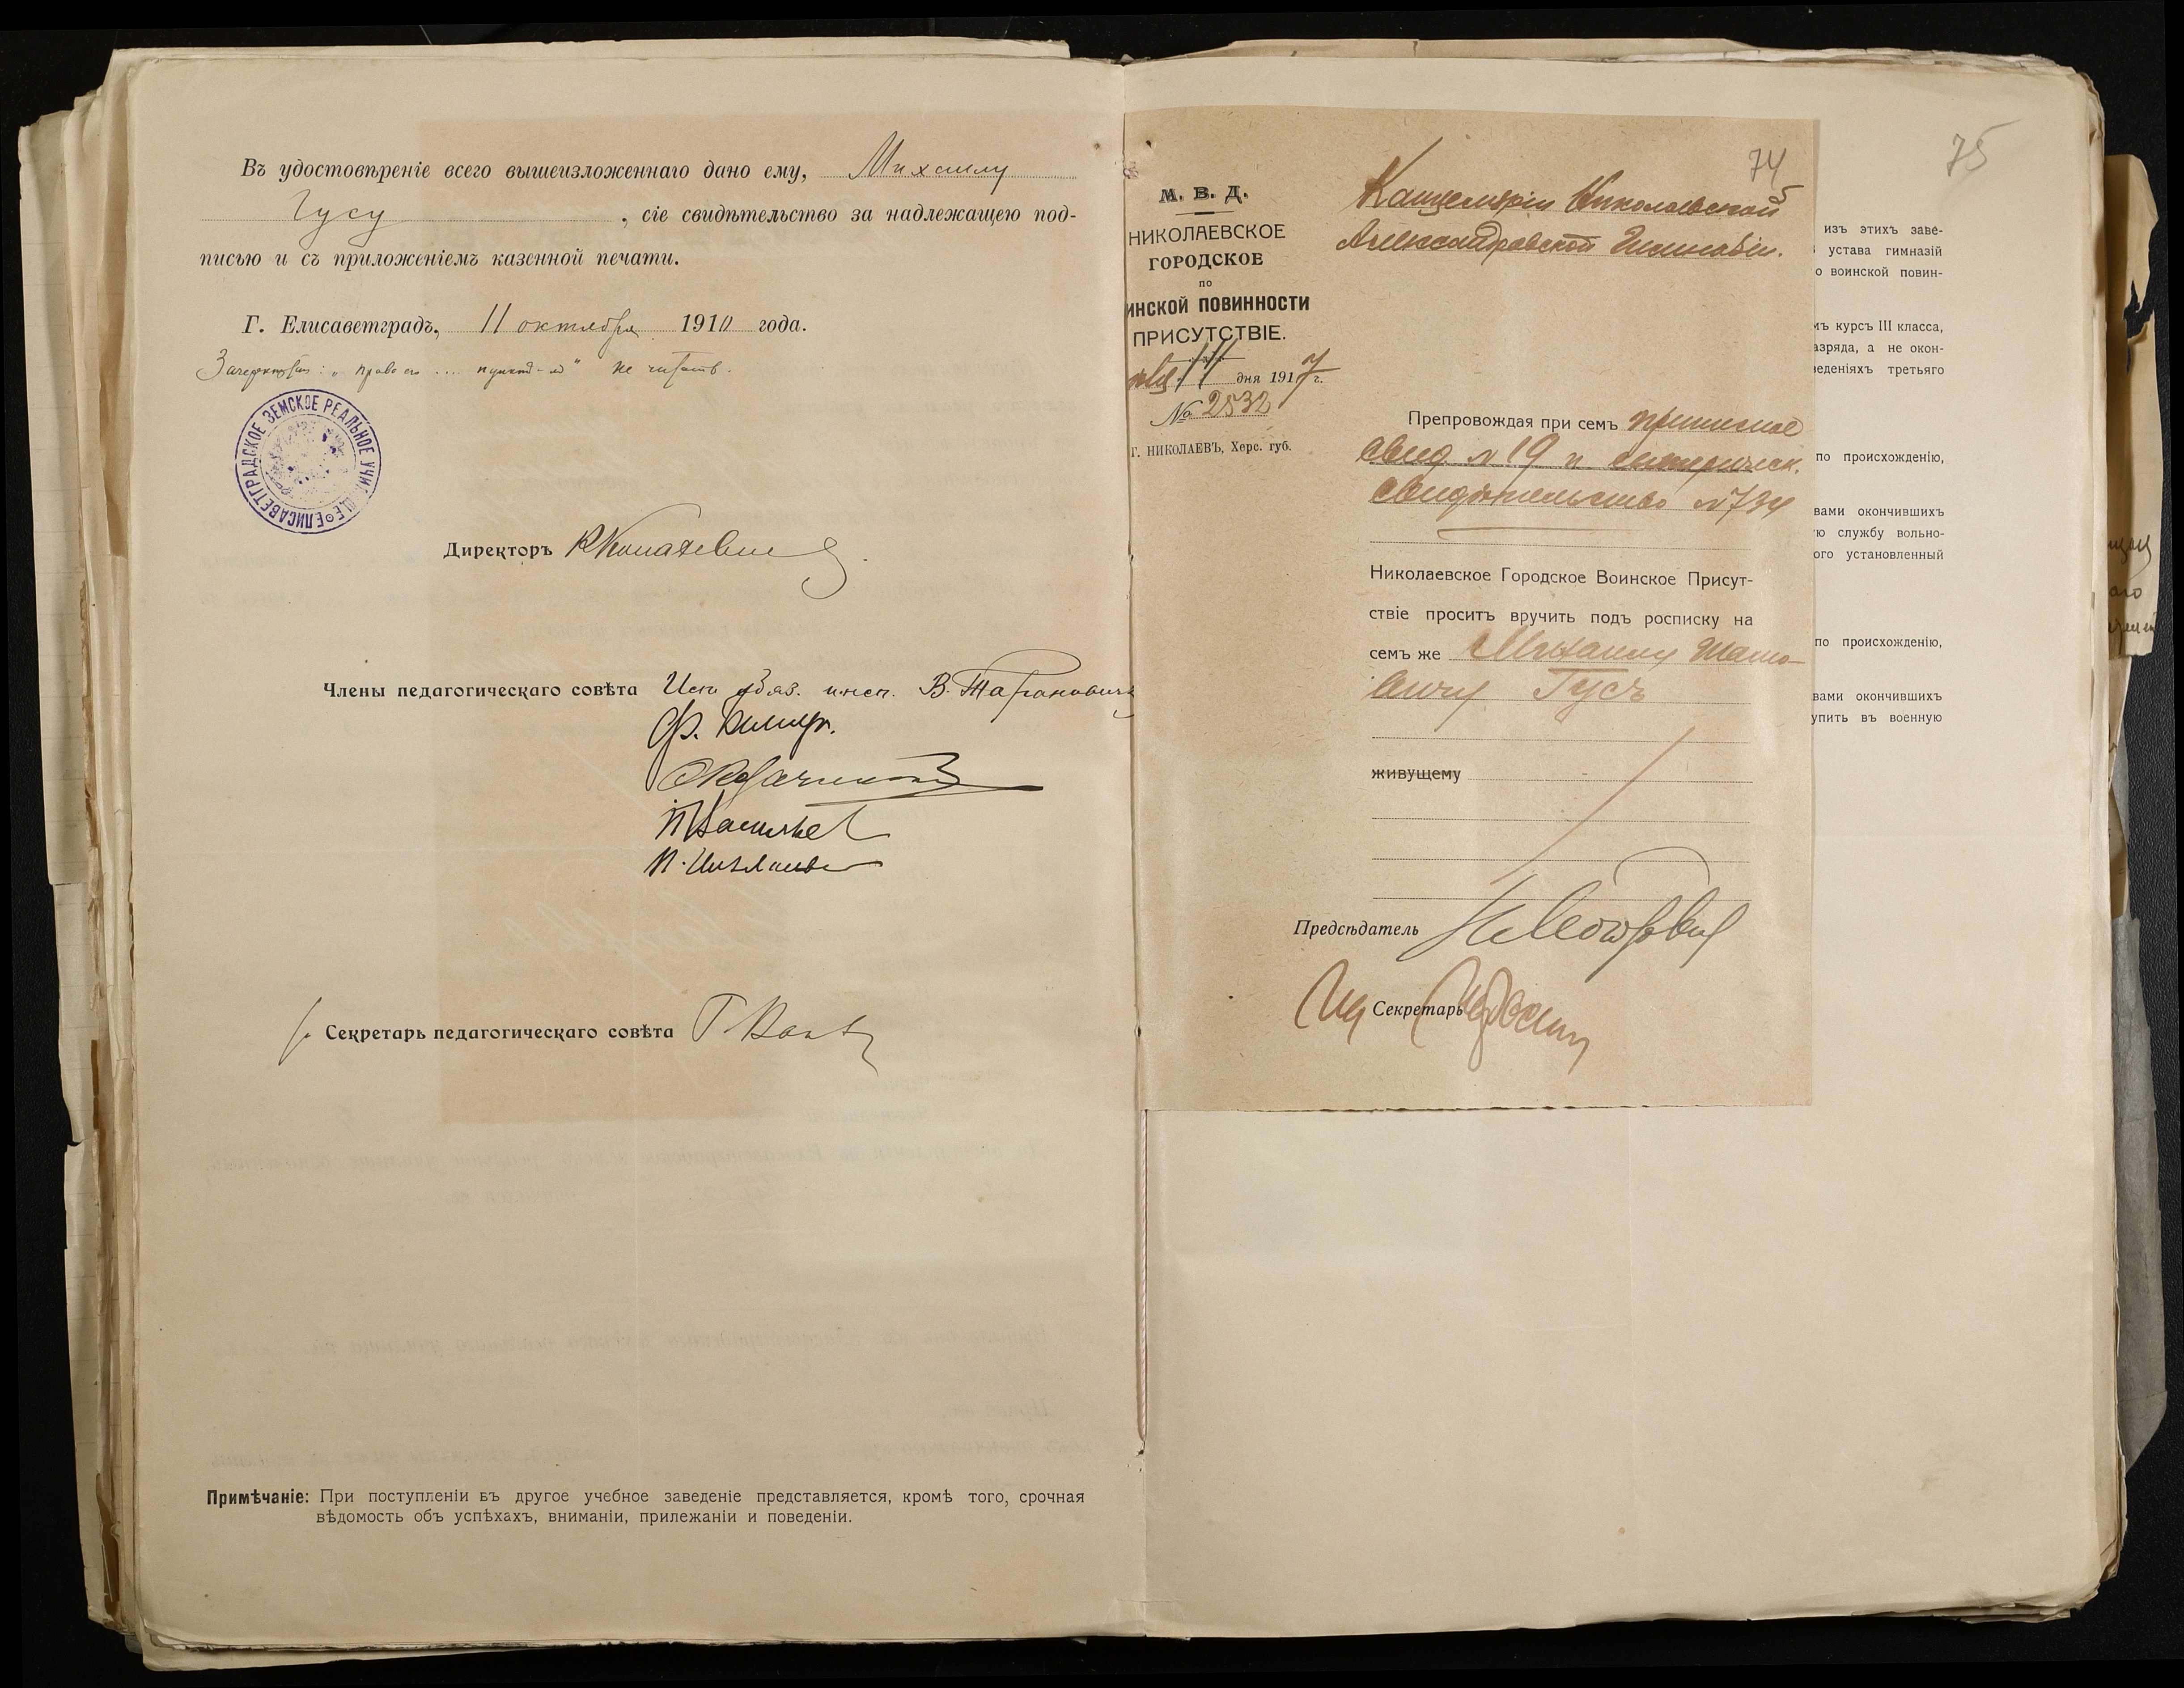 Въ удостовѣреніе всего вышеизложеннаго дано ему, Михаилу
Гусу, сіе свидѣтельство за надлежащею под-
писью и съ приложеніемъ казенной печати.
Г. Елисаветградъ, 11 октября 1910 года.
Зачеркнутое: „право его ... пункт-" не читать.
ЕЛИСАВЕТГРАДСКОЕ ЗЕМСКОЕ РЕАЛЬНОЕ УЧИЛИЩЕ
Директоръ
Члены педагогическаго совѣта Исп. обяз. инсп. В. Тарановичъ
Секретарь педагогическаго совѣта
Примѣчаніе: При поступленіи въ другое учебное заведеніе представляется, кромѣ того, срочная
вѣдомость объ успѣхахъ, вниманіи, прилежаніи и поведеніи.
74
75
М. В. Д.
НИКОЛАЕВСКОЕ
ГОРОДСКОЕ
по
ИНСКОЙ ПОВИННОСТИ
ПРИСУТСТВІЕ.
11 дня 1917 г.
№ 2532
Г. НИКОЛАЕВЪ, Херс. губ.
Канцеляріи Николаевской
Александровской Гимназіи.
Препровождая при семъ приписное
свид. № 19 и метрическ.
свидѣтельство № 734
Николаевское Городское Воинское Присут-
ствіе проситъ вручить подъ росписку на
семъ же Михаилу
Гусъ
живущему
Предсѣдатель
Секретарь
изъ этихъ заве-
устава гимназій
о воинской повин-
мъ курсъ III класса,
азряда, а не окон-
веденіяхъ третьяго
по происхожденію,
вами окончившихъ
ю службу вольно-
ого установленный
по происхожденію,
вами окончившихъ
упить въ военную